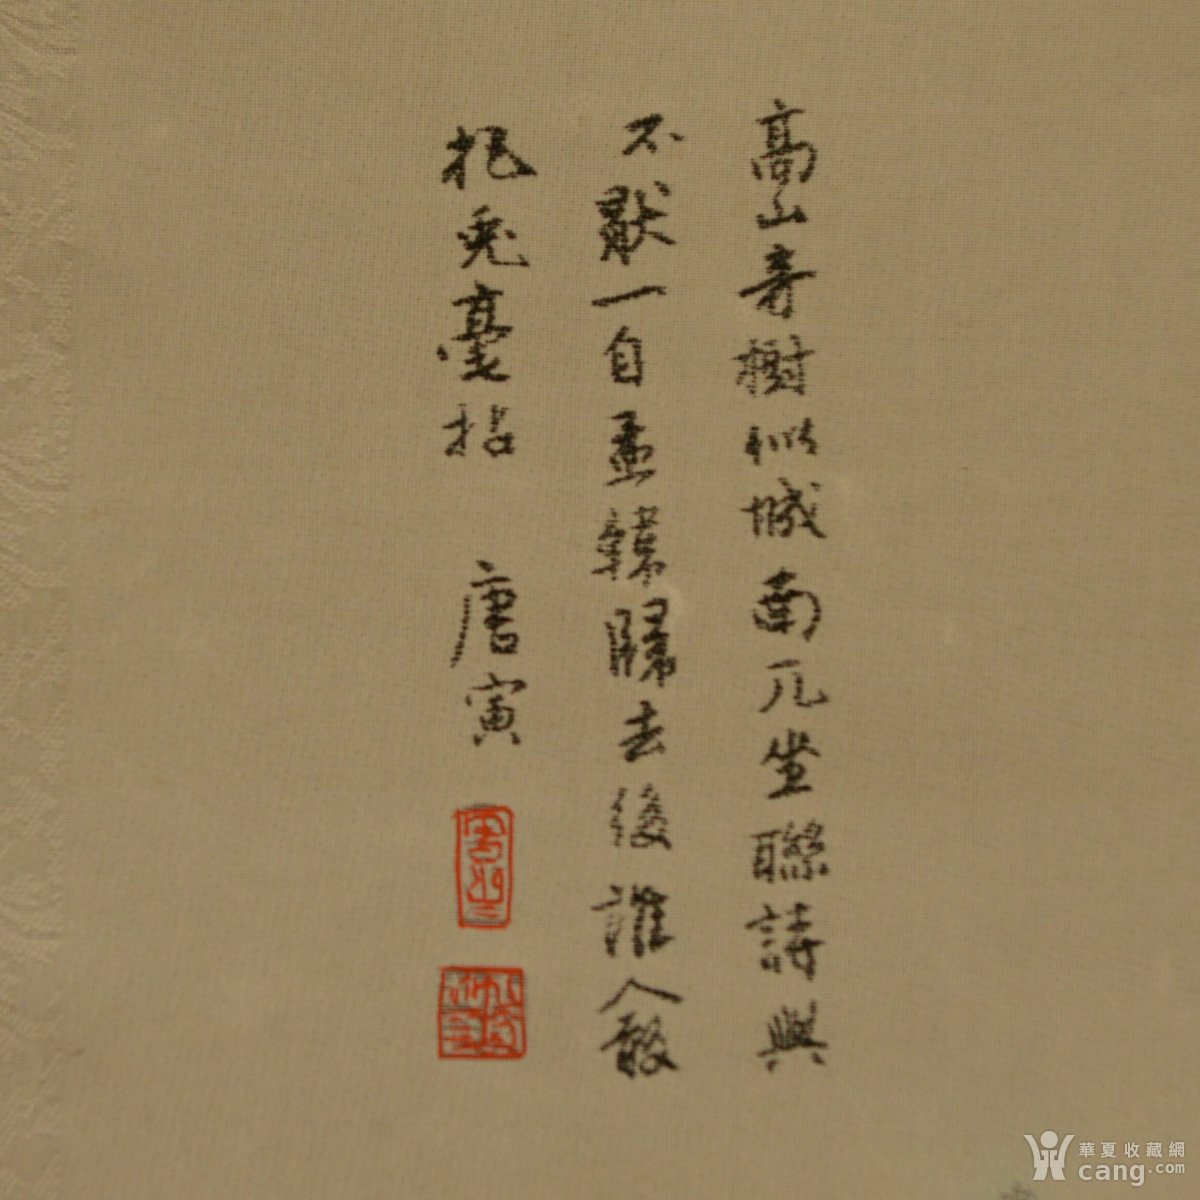 高山奇樹似城南兀坐聯詩興
不厭一自孟韓歸去後誰人敢
把兔毫拈 唐寅
華夏收藏網
cang.com